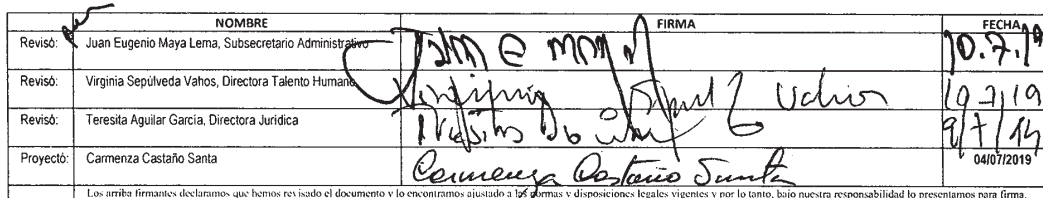 NOMBRE FIRMA FECHA
Revisó: Juan Eugenio Maya Lema, Subsecretario Administrativo 10.7.19
Revisó: Virginia Sepúlveda Vahos, Directora Talento Humano Virginia Sepulv Vahos 10/7/19
Revisó: Teresita Aguilar García, Directora Jurídica
Proyectó: Carmenza Castaño Santa Carmenza Castaño Santa 04/07/2019
Los arriba firmantes declaramos que hemos revisado el documento y lo encontramos ajustado a las normas y disposiciones legales vigentes y por lo tanto, bajo nuestra responsabilidad lo presentamos para firma.